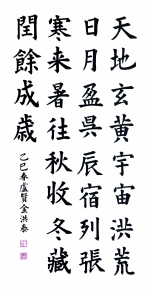 天地玄黄宇宙洪荒
日月盈昃辰宿列張
寒来暑往秋收冬藏
閏餘成歲
乙巳春盧賢金洪泰